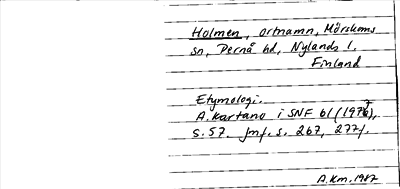 Holmen, ortnamn, Mörskoms
sn, Pernå hd, Nylands l.
Finland
Etymologi.
A. Kartano i SNF 61 (1973),
s. 57. Jmf. s. 267, 277f.
A.Km. 1987